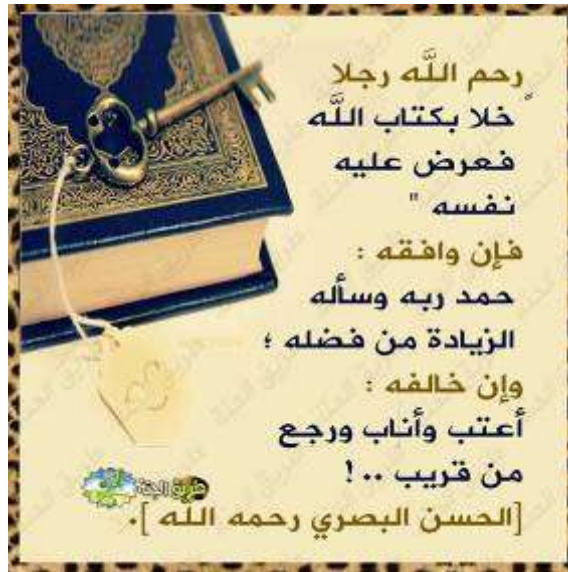 رحم اللَّه رجلا
خلا بكتاب اللَّه
فعرض عليه
نفسه "
فإن وافقه :
حمد ربه وسأله
الزيادة من فضله ؛
وإن خالفه :
أعتب وأناب ورجع
من قريب .. !
طريق الجنة
[الحسن البصري رحمه الله ].